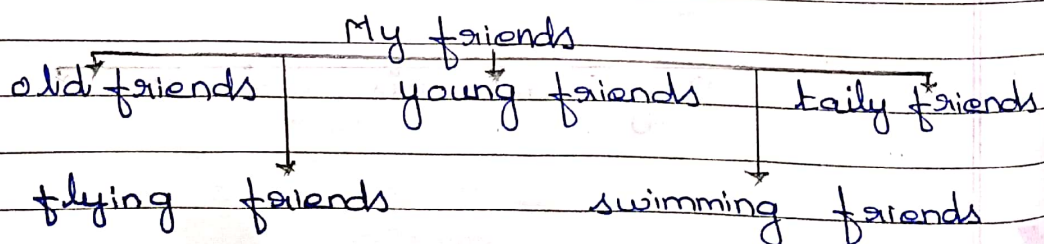 My friends
old friends young friends taily friends
flying friends swimming friends